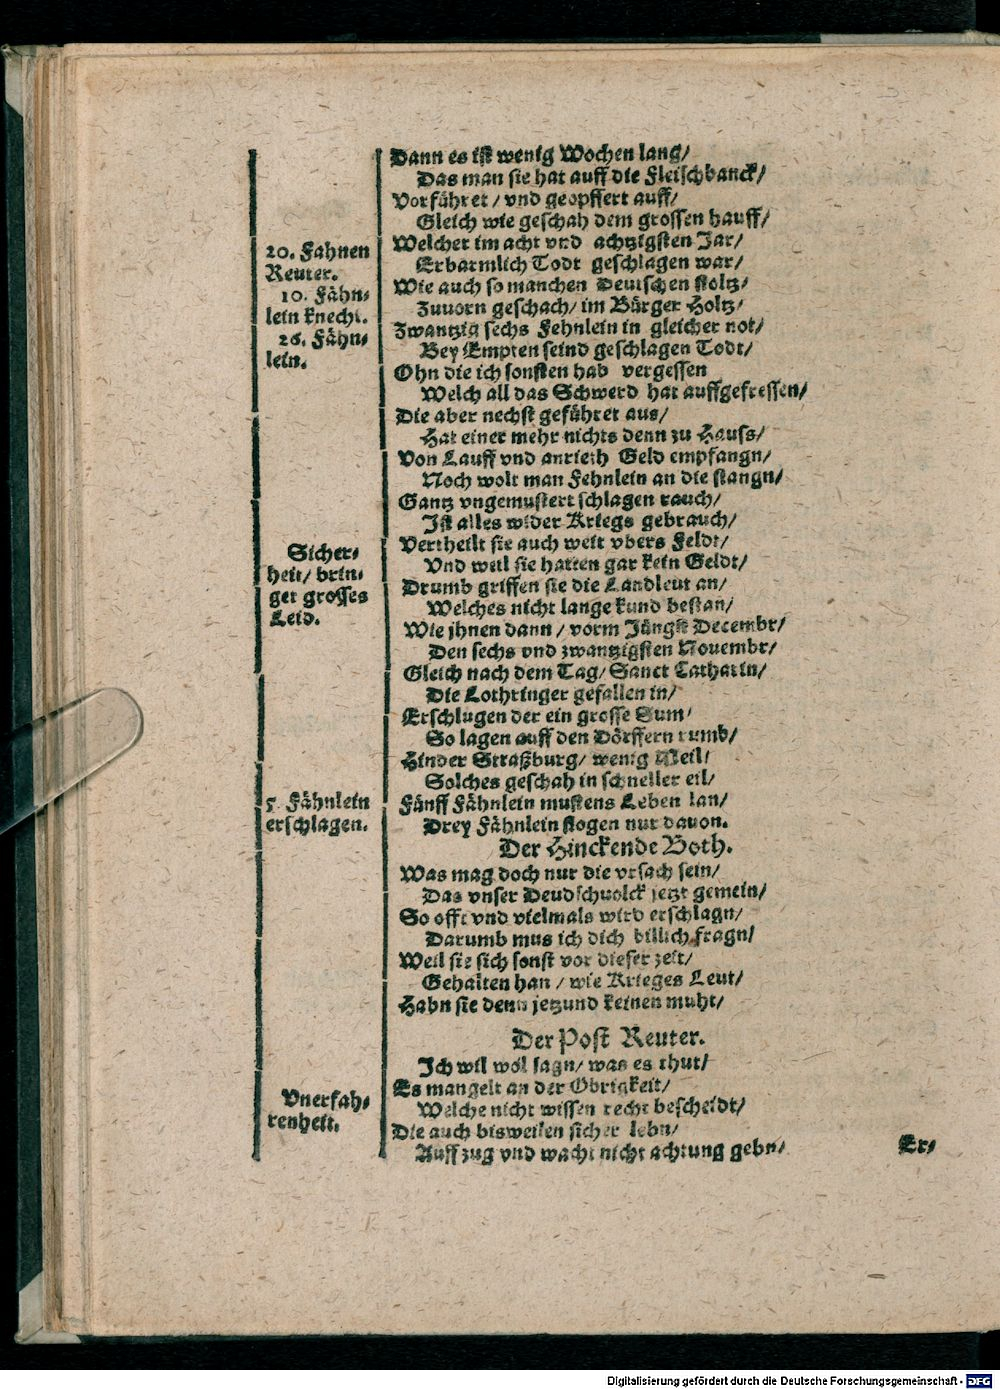 Dann es ist wenig Wochen lang/
Das man sie hat auff die Fleischbanck/
Vorführet / vnd geopffert auff/
Gleich wie geschah dem grossen hauff/
Welcher im acht vnd achtzigsten Jar/
Erbarmlich Todt geschlagen war/
Wie auch so manchen Deutschen stoltz/
Zuuorn geschach/ im Bürger Holtz/
Zwantzig sechs Fehnlein in gleicher not/
Bey Empten seind geschlagen Todt/
Ohn die ich sonsten hab vergessen
Welch all das Schwerd hat auffgefressen/
Die aber nechst geführet aus/
Hat einer mehr nichts denn zu Hauss/
Von Lauff vnd anrieth Geld empfangn/
Noch wolt man Fehnlein an die stangn/
Gantz vngemustert schlagen rauch/
Ist alles wider Kriegs gebrauch/
Vertheilt sie auch weit vbers Feldt/
Vnd weil sie hatten gar kein Geldt/
Drumb griffen sie die Landleut an/
Welches nicht lange kund bestan/
Wie jhnen dann / vorm Jüngst Decembr/
Den sechs vnd zwantzigsten Nouembr/
Gleich nach dem Tag/ Sanct Catharin/
Die Lothringer gefallen in/
Erschlugen der ein grosse Sum/
So lagen auff den Dörffern rumb/
Hinder Straßburg/ wenig Meil/
Solches geschah in schneller eil/
Fünff Fähnlein mustens Leben lan/
Drey Fähnlein flogen nur dauon.
Der Hinckende Both.
Was mag doch nur die vrsach sein/
Das vnser Deudschuolck jetzt gemein/
So offt vnd vielmals wird erschlagn/
Darumb mus ich dich billich fragn/
Weil sie sich sonst vor dieser zeit/
Gehalten han / wie Krieges Leut/
Habn sie denn jetzund keinen muht/
Der Post Reuter.
Ich wil wol sagn/ was es thut/
Es mangelt an der Obrigkeit/
Welche nicht wissen recht bescheidt/
Die auch bisweilen sicher lebn/
Auff zug vnd wacht nicht achtung gebn/
Er/
20. Fahnen
Reuter.
10. Fähn/
lein knecht.
26. Fähn/
lein.
Sicher/
heit/ brin/
get grosses
Leid.
5 Fähnlein
erschlagen.
Vnerfah/
renheit.
Digitalisierung gefördert durch die Deutsche Forschungsgemeinschaft - DFG